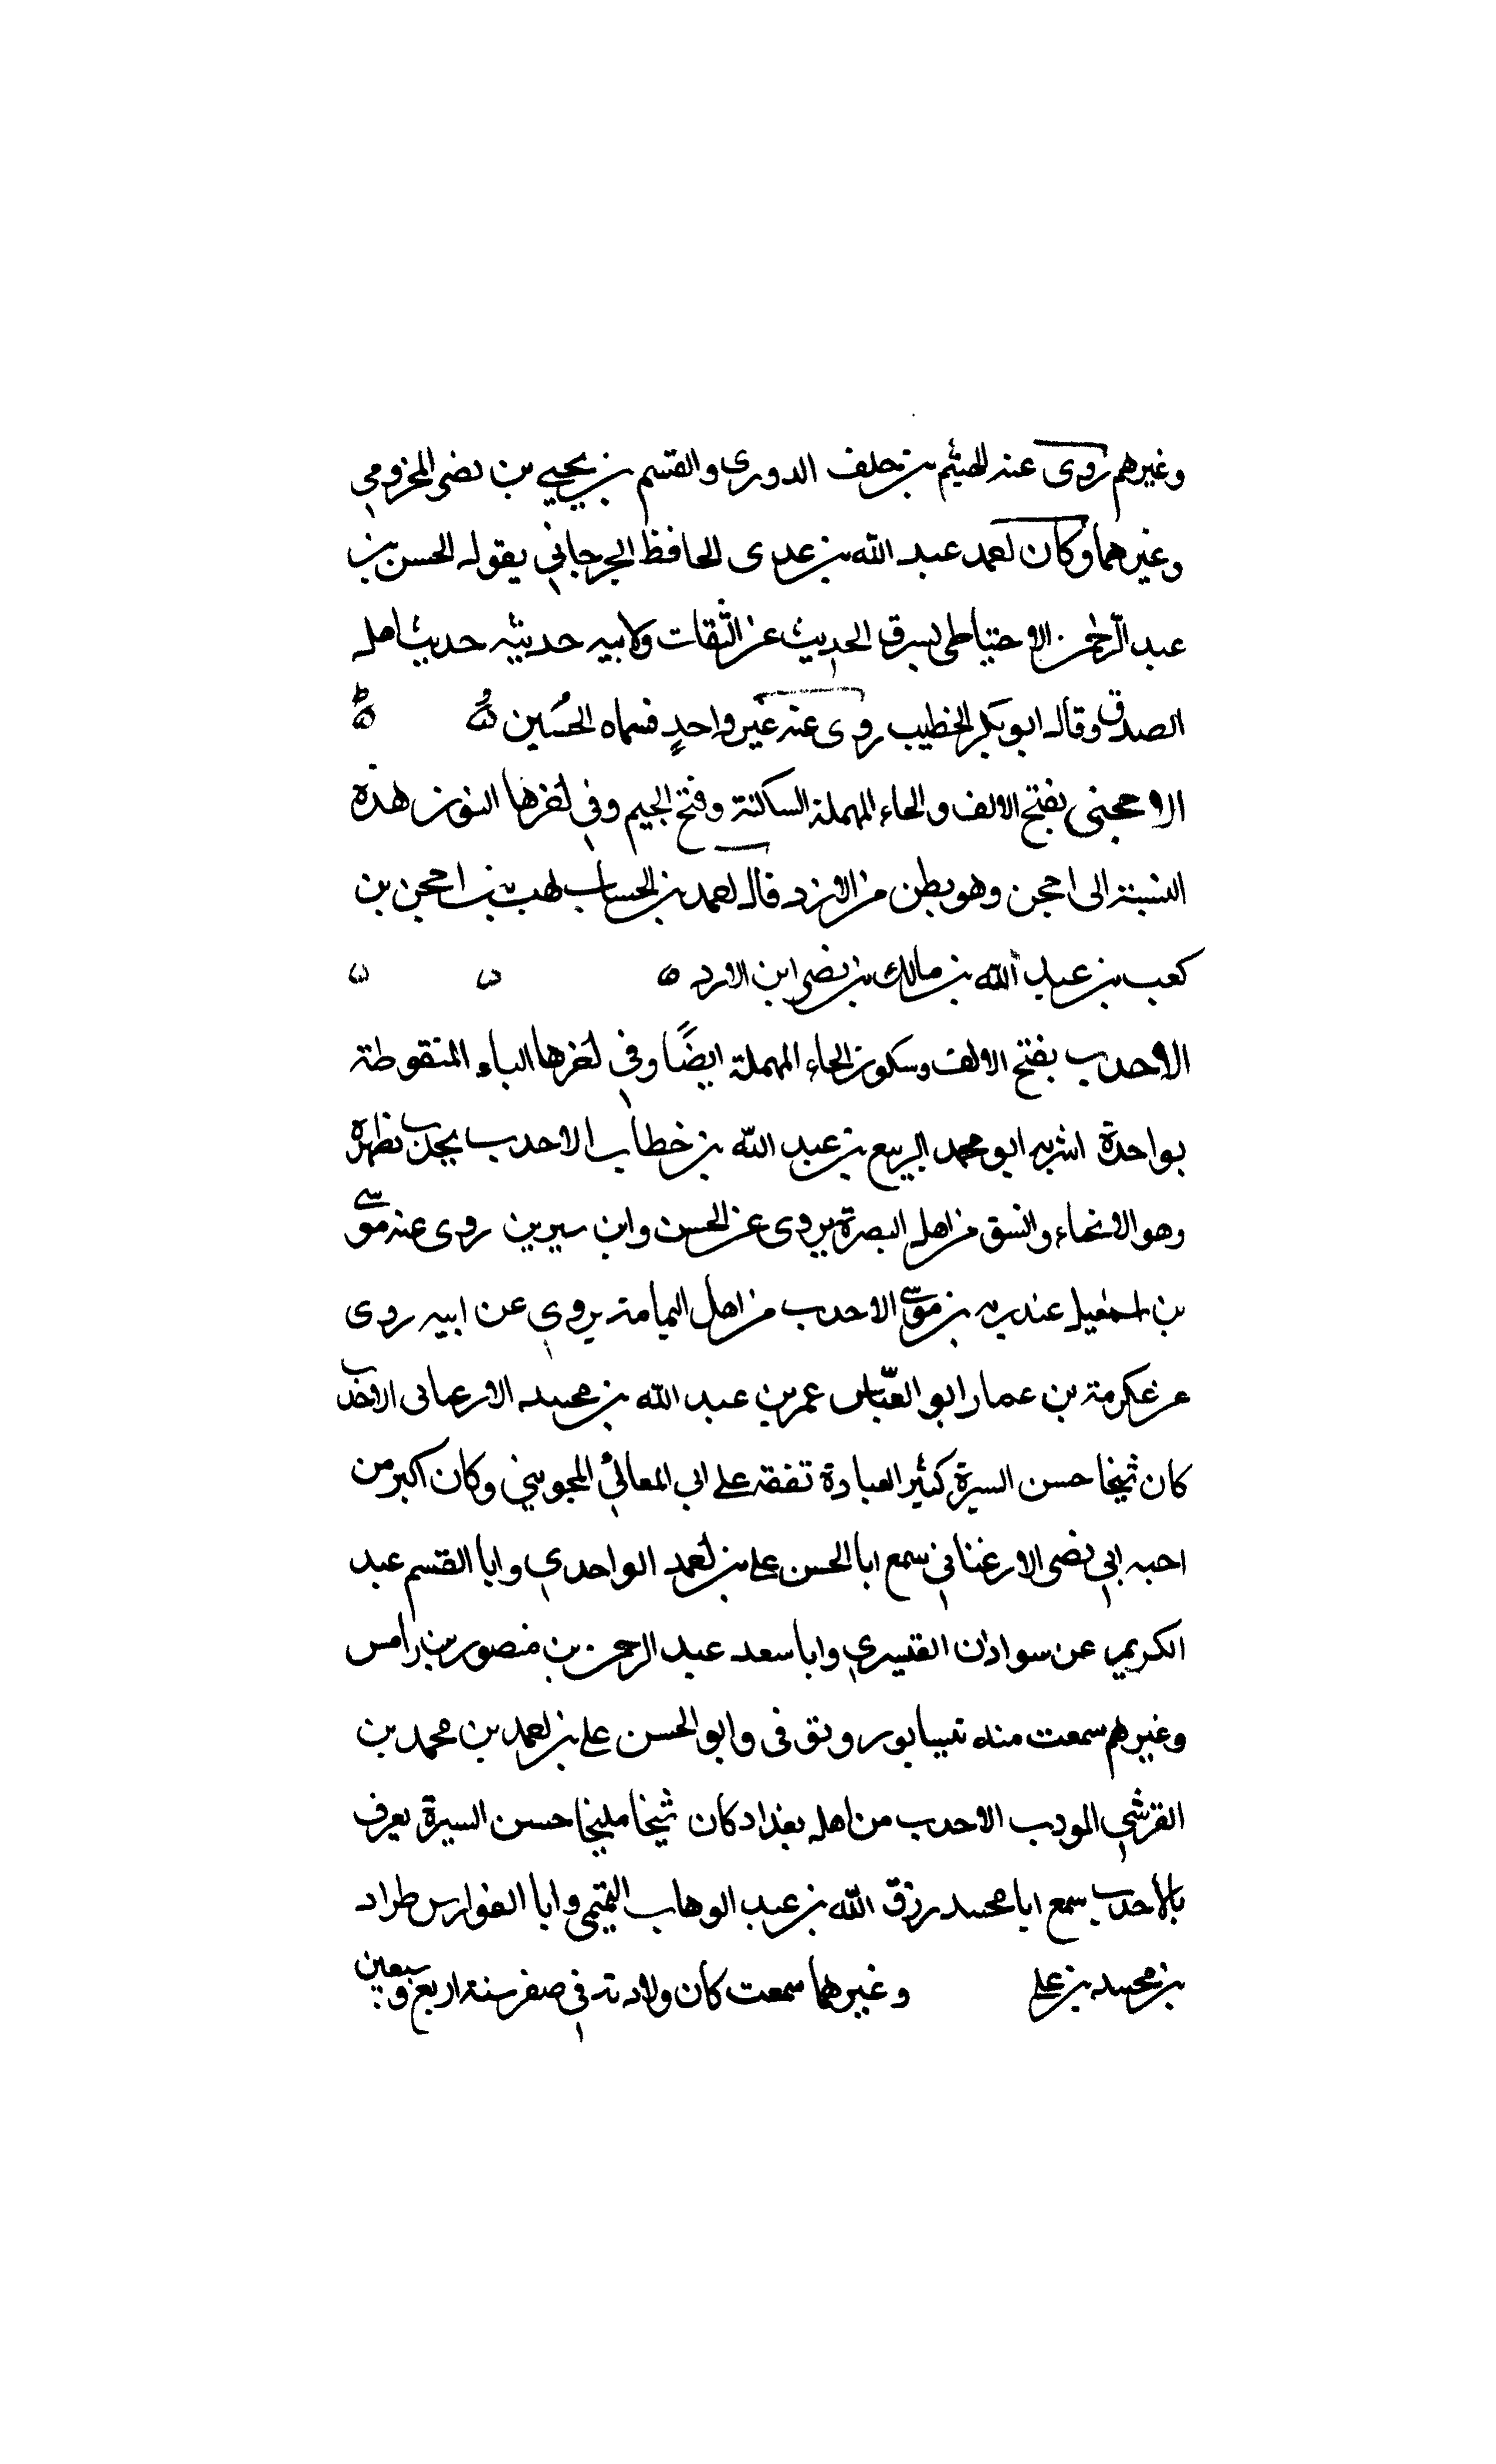 وغيرهم روى عنه الهيثم بن خلف الدورى والقسم بن يحيي بن نصر المخرومي
وغيرهما وكان احمد عبد الله بن عدى الحافظ الجرجاني يقول الحسن بن
عبد الرحمن الاحتياطى يسرق الحديث عن الثقات ولا يشبه حديثه حديث اهل
الصدق وقال ابو بكر الخطيب روى عنه غير واحدٍ فسماه الحُسَين
الاحجنى بفتح الالف والحاء المهملة الساكنة وفتح الجيم وفي اخرها النون هذه
النسبة الى احجن وهو بطن من الازد قال احمد بن الحساب لهب بن احجن بن
كعب بن عبد الله بن مالك بن نصر ابن الازد
الاحدب بفتح الالف وسكون الحاء المهملة ايضًا وفي اخرها الباء المنقوطة
بواحدة ابو محمد الربيع بن عبد الله بن خطاب الاحدب بظهره
وهو من اهل البصرة يروى عن الحسن وابن سيرين روى عنه موسى
بن اسمعيل بن موسى الاحدب من اهل اليمامة يروي عن ابيه روى
عن عكرمة بن عمار ابو العبّاس عمر بن عبد الله بن محمد الارغانى الاحدب
كان شيخا حسن السيرة كثير العبادة تفقه على ابى المعالي الجويني وكان اكبر من
اخيه ابي نصر الارغناني سمع ابا الحسن على بن احمد الواحدي وابا القسم عبد
الكريم عن سوادان القشيري وابا سعد عبد الرحمن بن منصور بن رامس
وغيرهم سمعت منه نيسابور وتوفى وابو الحسن على بن احمد بن محمد بن
القرشي المودب الاحدب من اهل بغداد كان شيخا مليخا حسن السيرة يعرف
بالاحدب سمع ابا محمد رزق الله بن عبد الوهاب التميمى وابا الفوارس طراد
بن محمد بن على وغيرهما سمعت كان ولادته في صفر سنة اربع وسبعين